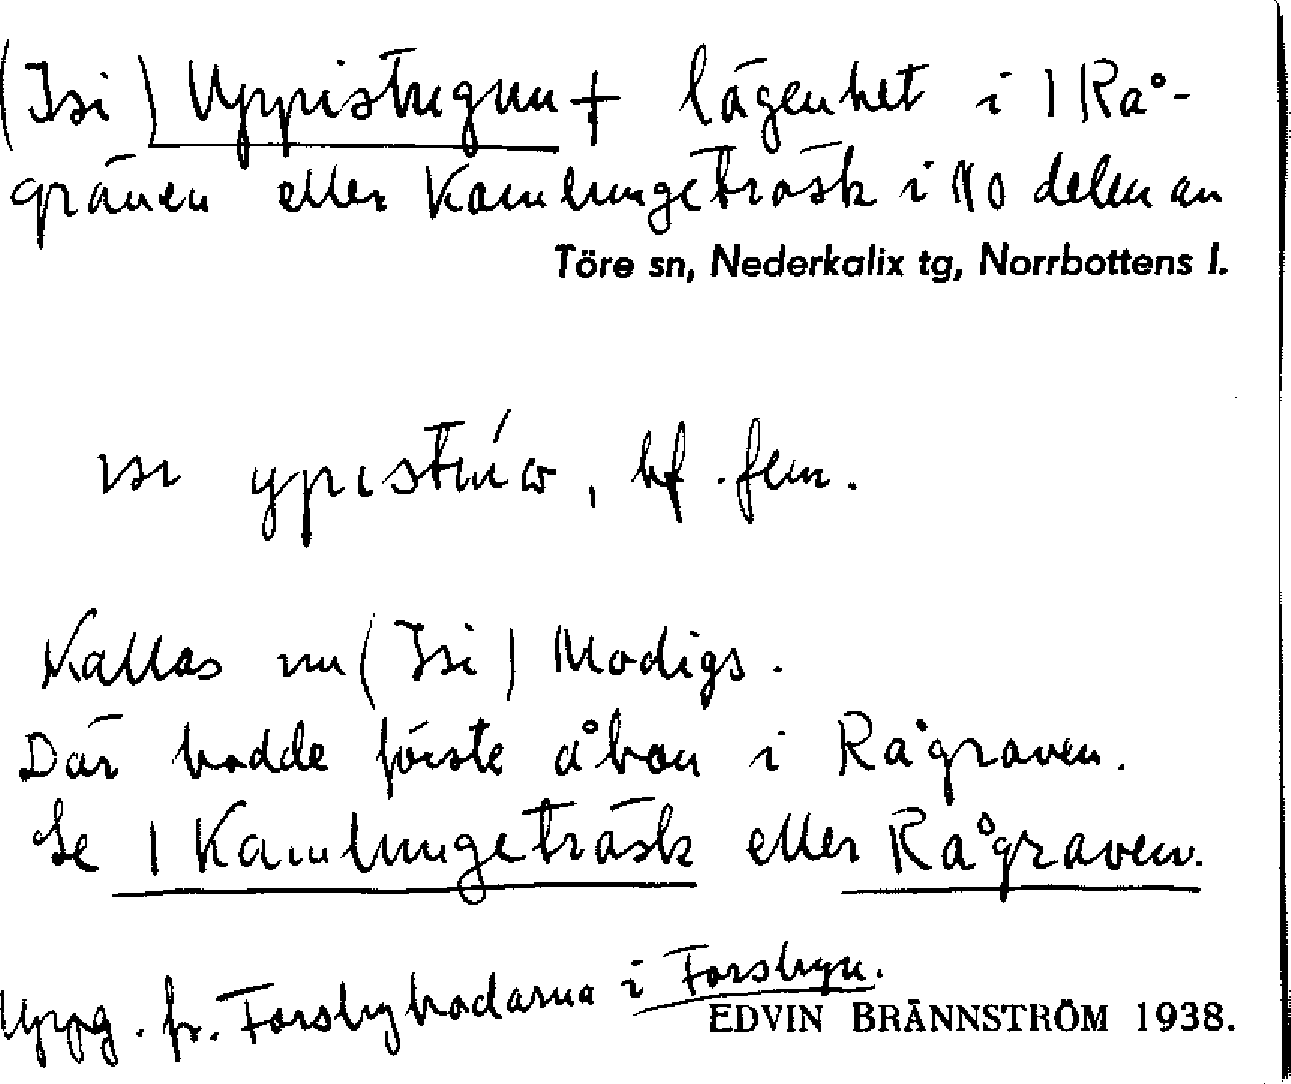 (Isi) Uppistugun + lägenhet i 1 Rå-
gräven eller Kamlungeträsk i NO delen av
Töre sn, Nederkalix tg, Norrbottens l.
ɪsɪ ypɪstúw, bf. fem.
Kallas nu (Isi) Modigs.
Där bodde förste åbon i Rågraven.
Se 1 Kamlungeträsk eller Rågraven.
Uppg. fr. Forsbyborna i Forsbyn.
EDVIN BRÄNNSTRÖM 1938.